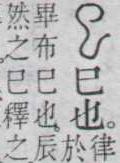 巳也。
律
於
畢布巳也。辰
然之巳釋之